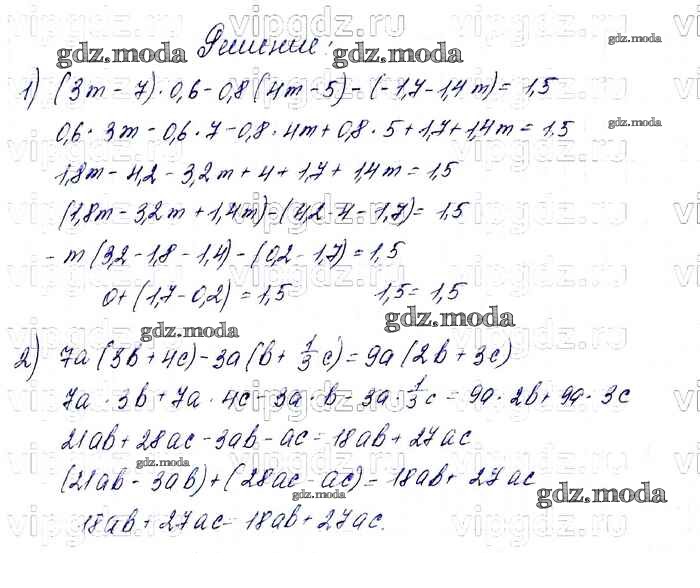 Решение:
1) (3m - 7) · 0,6 - 0,8 (4m - 5) - (-1,7 - 1,4m) = 1,5
0,6 · 3m - 0,6 · 7 - 0,8 · 4m + 0,8 · 5 + 1,7 + 1,4m = 1,5
1,8m - 4,2 - 3,2m + 4 + 1,7 + 1,4m = 1,5
(1,8m - 3,2m + 1,4m) - (4,2 - 4 - 1,7) = 1,5
- m (3,2 - 1,8 - 1,4) - (0,2 - 1,7) = 1,5
0 + (1,7 - 0,2) = 1,5 1,5 = 1,5
2) 7a (3b + 4c) - 3a (b + 1/3 c) = 9a (2b + 3c)
7a · 3b + 7a · 4c - 3a · b - 3a · 1/3 c = 9a · 2b + 9a · 3c
21ab + 28ac - 3ab - ac = 18ab + 27ac
(21ab - 3ab) + (28ac - ac) = 18ab + 27ac
18ab + 27ac = 18ab + 27ac.
vipgdz.ru
gdz.moda